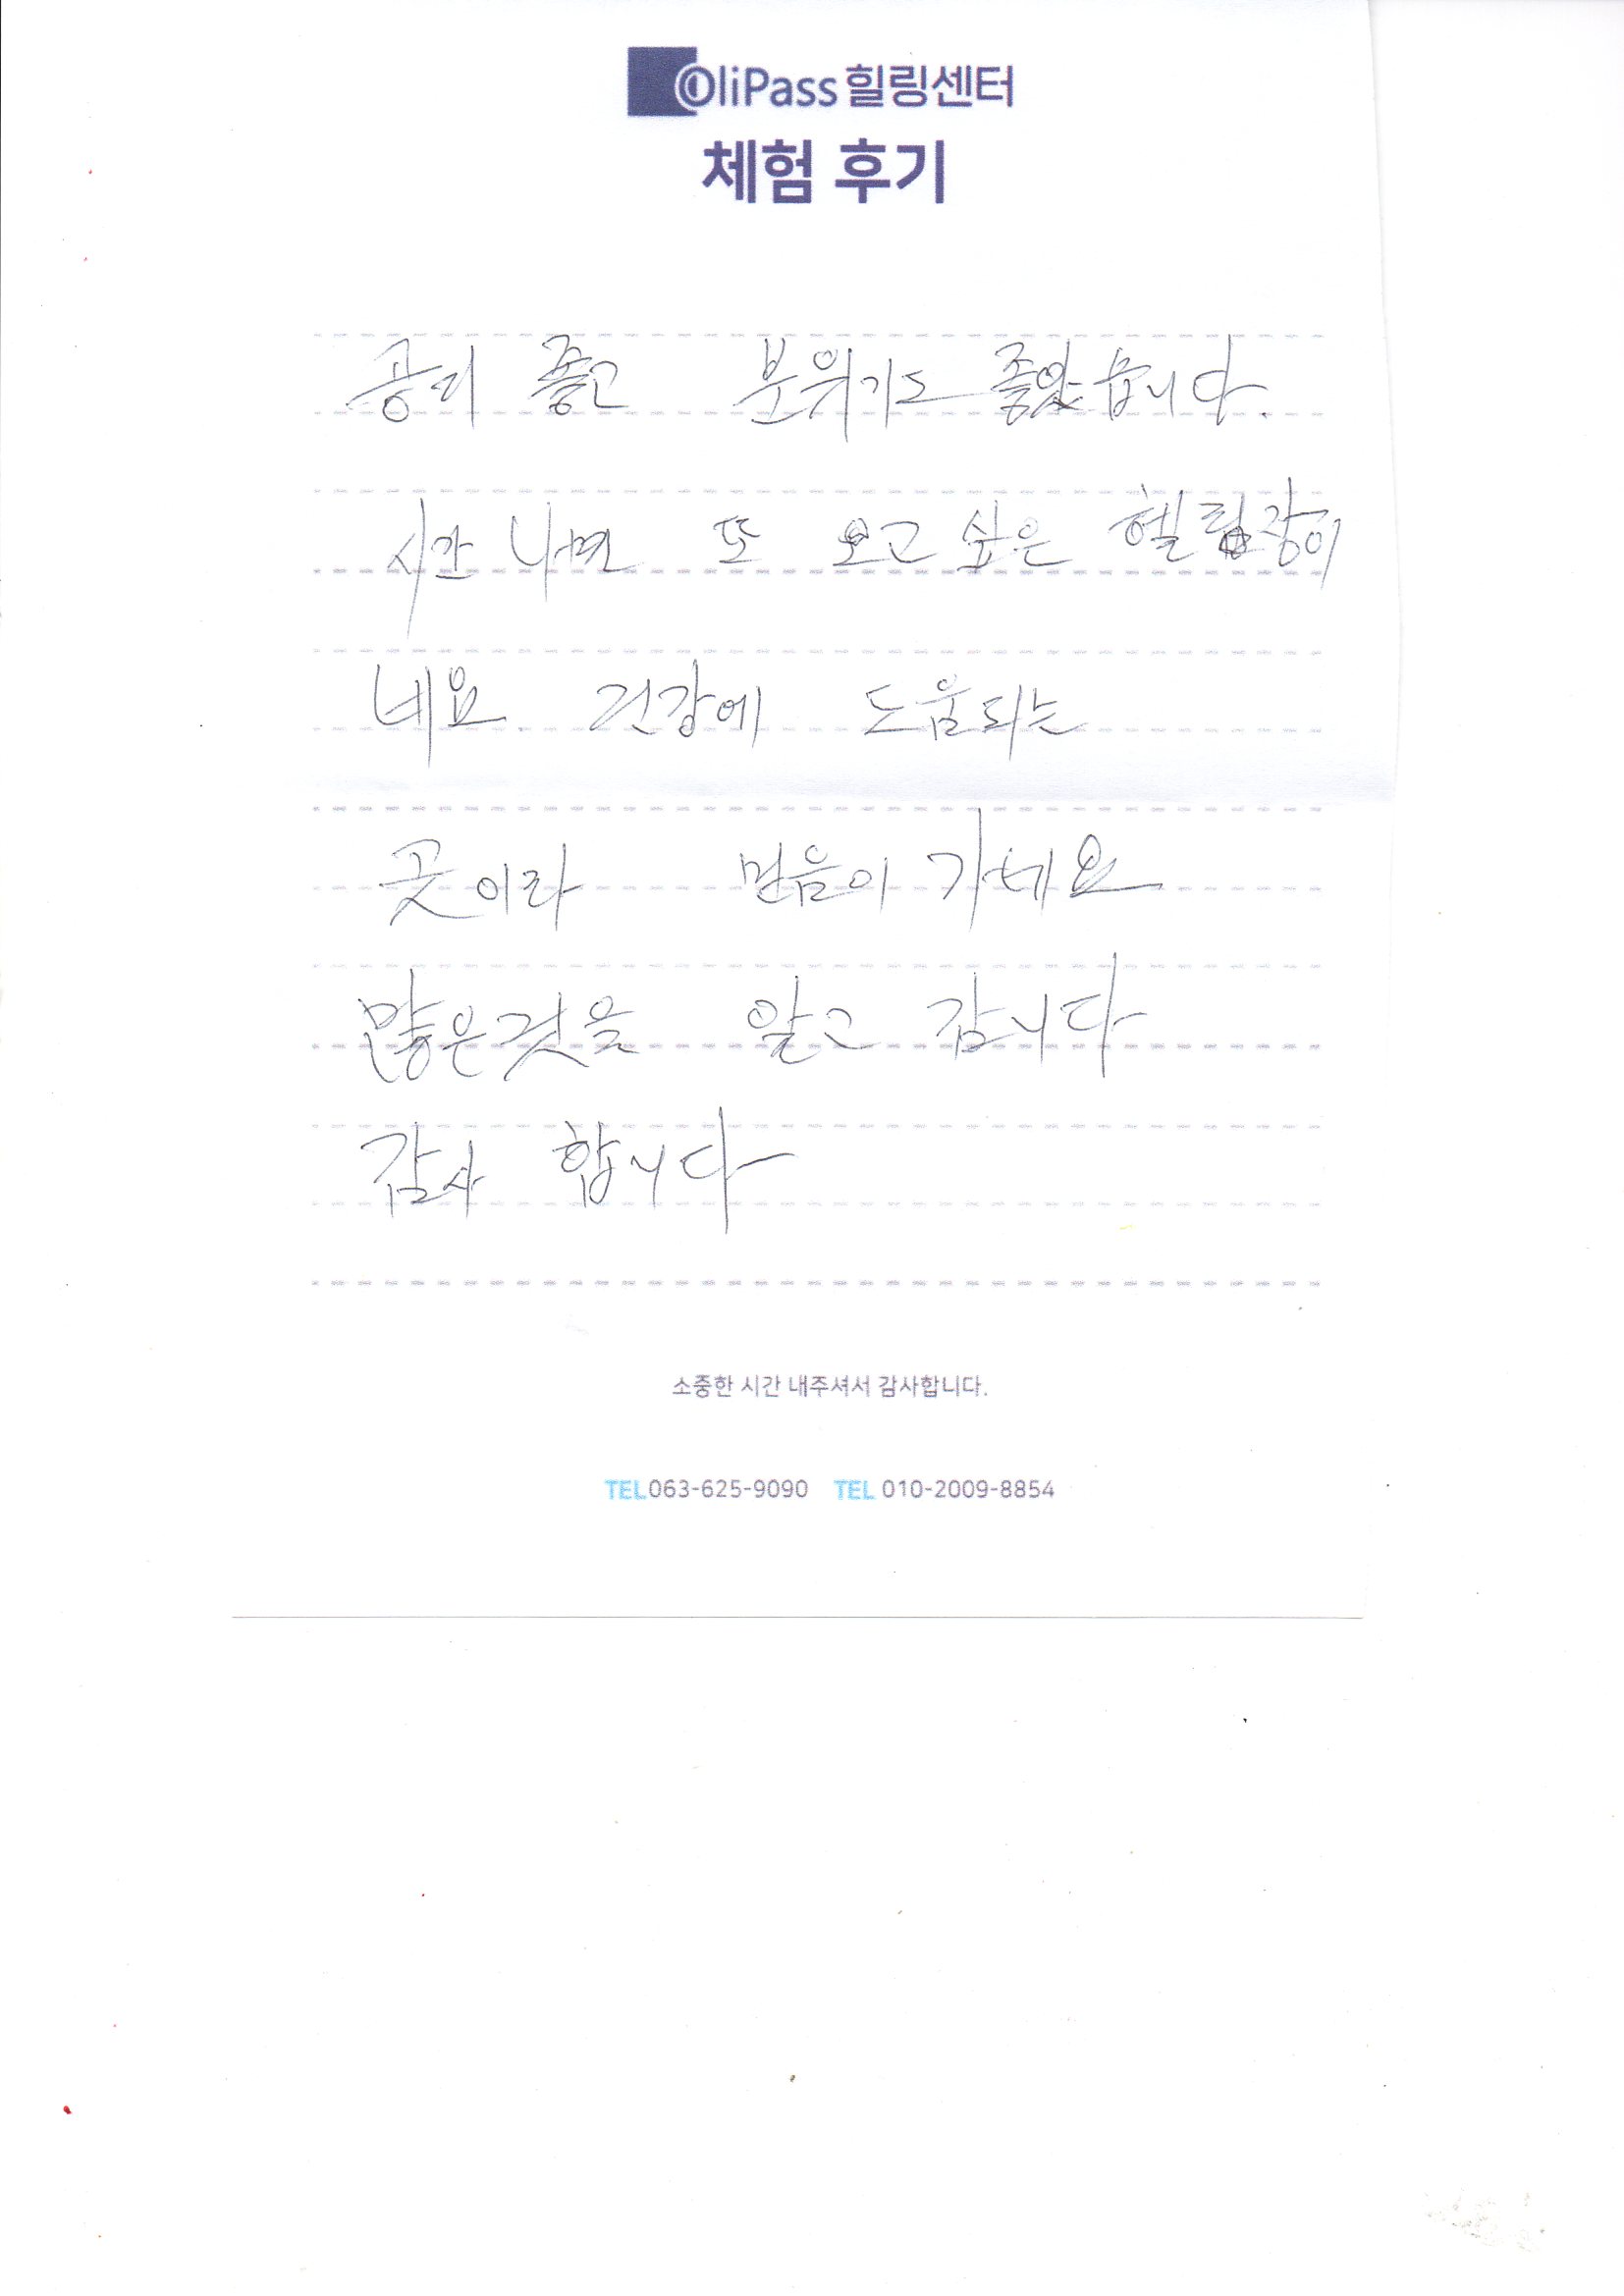 OliPass 힐링센터
체험 후기
공기 좋고 분위기도 좋았습니다.
시간 나면 또 오고 싶은 헬링장이
네요. 건강에 도움되는
곳이라 믿음이 가네요
많은것을 알고 갑니다
감사 합니다
소중한 시간 내주셔서 감사합니다.
TEL 063-625-9090 TEL 010-2009-8854